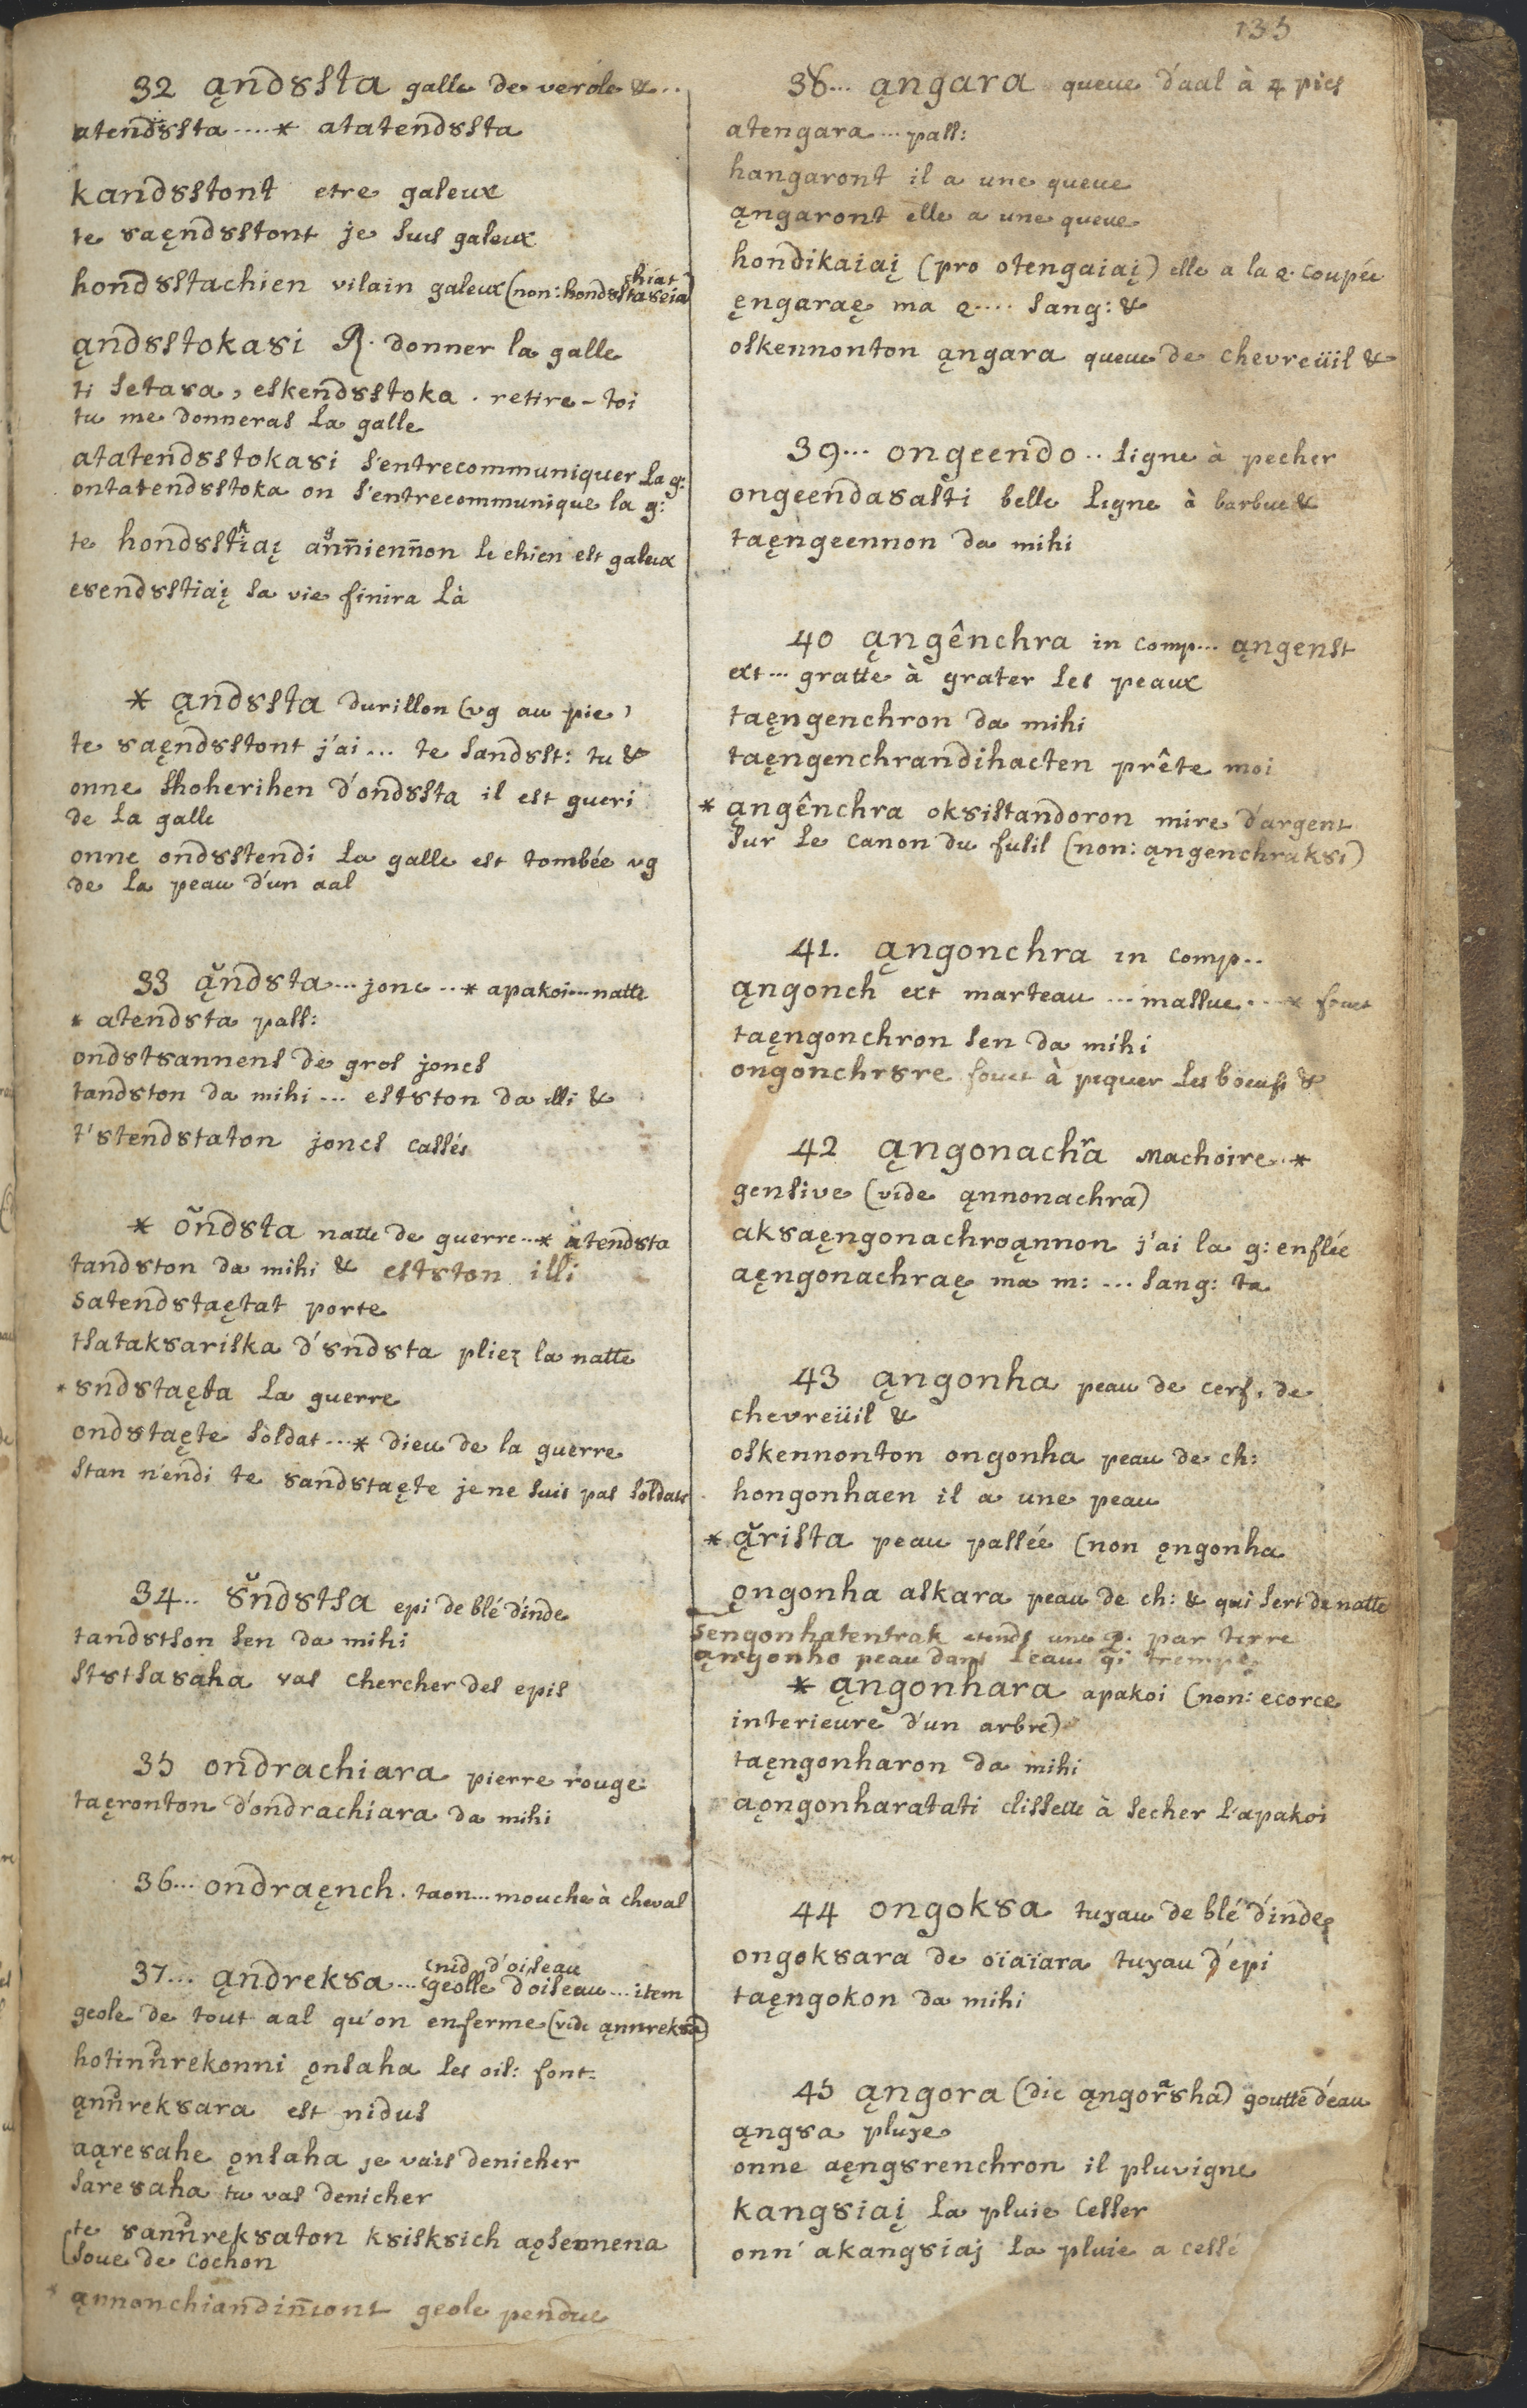 135
32 ąnd8sta galle de verole &...
atend8sta ....* atatend8sta
kand8stont etre galeux
te 8aęnd8stont je suis galeux
hond8stachien vilain galeux (non: hond8sta8eia)
chiat
ąnd8stoka8i R. donner la galle
ti seta8a, eskend8stoka. retire-toi
tu me donneras la galle
atatend8stoka8i s'entrecommuniquer la g:
ontatend8stoka on s'entrecommunique la g:
te hond8stiaį annienon le chien est galeux
e8end8stiaį sa vie finira là
* ąnd8sta durillon (vg au pie)
te 8aęnd8stont j'ai ... te sand8st: tu &
onne shoherihen d'ond8sta il est gueri
de la galle
onne ond8stendi la galle est tombée vg
de la peau d'un aal
33 ąnd8ta ... jonc ..* apakoi... natte
* atend8ta pass:
ond8t8annens de gros joncs
tand8ton da mihi ... est8ton da illi &
t'8tend8taton joncs cassés
* ond8ta natte de guerre ...* atend8ta
tand8ton da mihi & est8ton illi
satend8taętat porte
tsatak8ariska d'8nd8ta pliez la natte
* 8nd8taęta la guerre
ond8taęte soldat ...* dieu de la guerre
stan n'endi te 8and8taęte je ne suis pas soldat
34.. 8nd8tsa epi de blé d'inde
tand8tson sen da mihi
st8tsa8aha vas chercher des epis
35 ondrachiara pierre rouge
taęronton d'ondrachiara da mihi
36... ondraęnch. taon... mouche à cheval
37... ąndrek8a ... (nid d'oiseau
(geolle d'oiseau ... item
geole de tout aal qu'on enferme (vide ąnnrek8a)
hotinnrekonni ǫnsaha les ois: font
ąnnrek8ara est nidus
aąre8ahe ǫnsaha je vais denicher
sare8aha tu vas denicher
te 8annrek8aton k8isk8ich aǫsennena
(soue de cochon
* ąnnonchiandinniont geole pendue
38... ąngara queue d'aal à 4 pies
atengara ... pass:
hangaront il a une queue
ąngaront elle a une queue
hondikaiaį (pro otengaiaį) elle a la q. coupée
ęngaraę ma q.... sang: &
oskennonton ąngara queue de chevreüil &
39... ongeendo.. ligne à pecher
ongeenda8asti belle ligne à barbue &
taęngeennon da mihi
40 ąngênchra in comp... ąngenst
ext... gratte à grater les peaux
taęngenchron da mihi
taęngenchrandihacten prête moi
* ąngênchra ok8istandoron mire d'argent
sur le canon du fusil (non: ąngenchrak8i)
41. ąngonchra in comp..
ąngonch ext marteau ... massue ...* fouet
taęngonchron sen da mihi
ongonchr8re fouet à piquer les boeufs &
42 ąngonachra Machoire..*
gensive (vide ąnnonachra)
ak8aęngonachroąnnon j'ai la g: enflée
aęngonachraę ma m: ... sang: ta
43 ąngonha peau de cerf, de
chevreüil &
oskennonton ongonha peau de ch:
hongonhaen il a une peau
* ąrista peau passée (non ǫngonha
ǫngonha askara peau de ch: & qui sert de natte
sengonhatentrak etends une p. par terre
ąngonho peau dans l'eau qi trempe
* ąngonhara apakoi (non: ecorce
interieure d'un arbre)
taęngonharon da mihi
aǫngonharatati clissette à secher l'apakoi
44 ongok8a tuyau de blé d'inde
ongok8ara de oïaïara tuyau d'epi
taęngokon da mihi
45 ąngora (dic ąngora8ha) goutte d'eau
ąng8a pluye
onne aęng8renchron il pluvigne
kang8iaį la pluie cesser
onn' akang8iaj la pluie a cessé